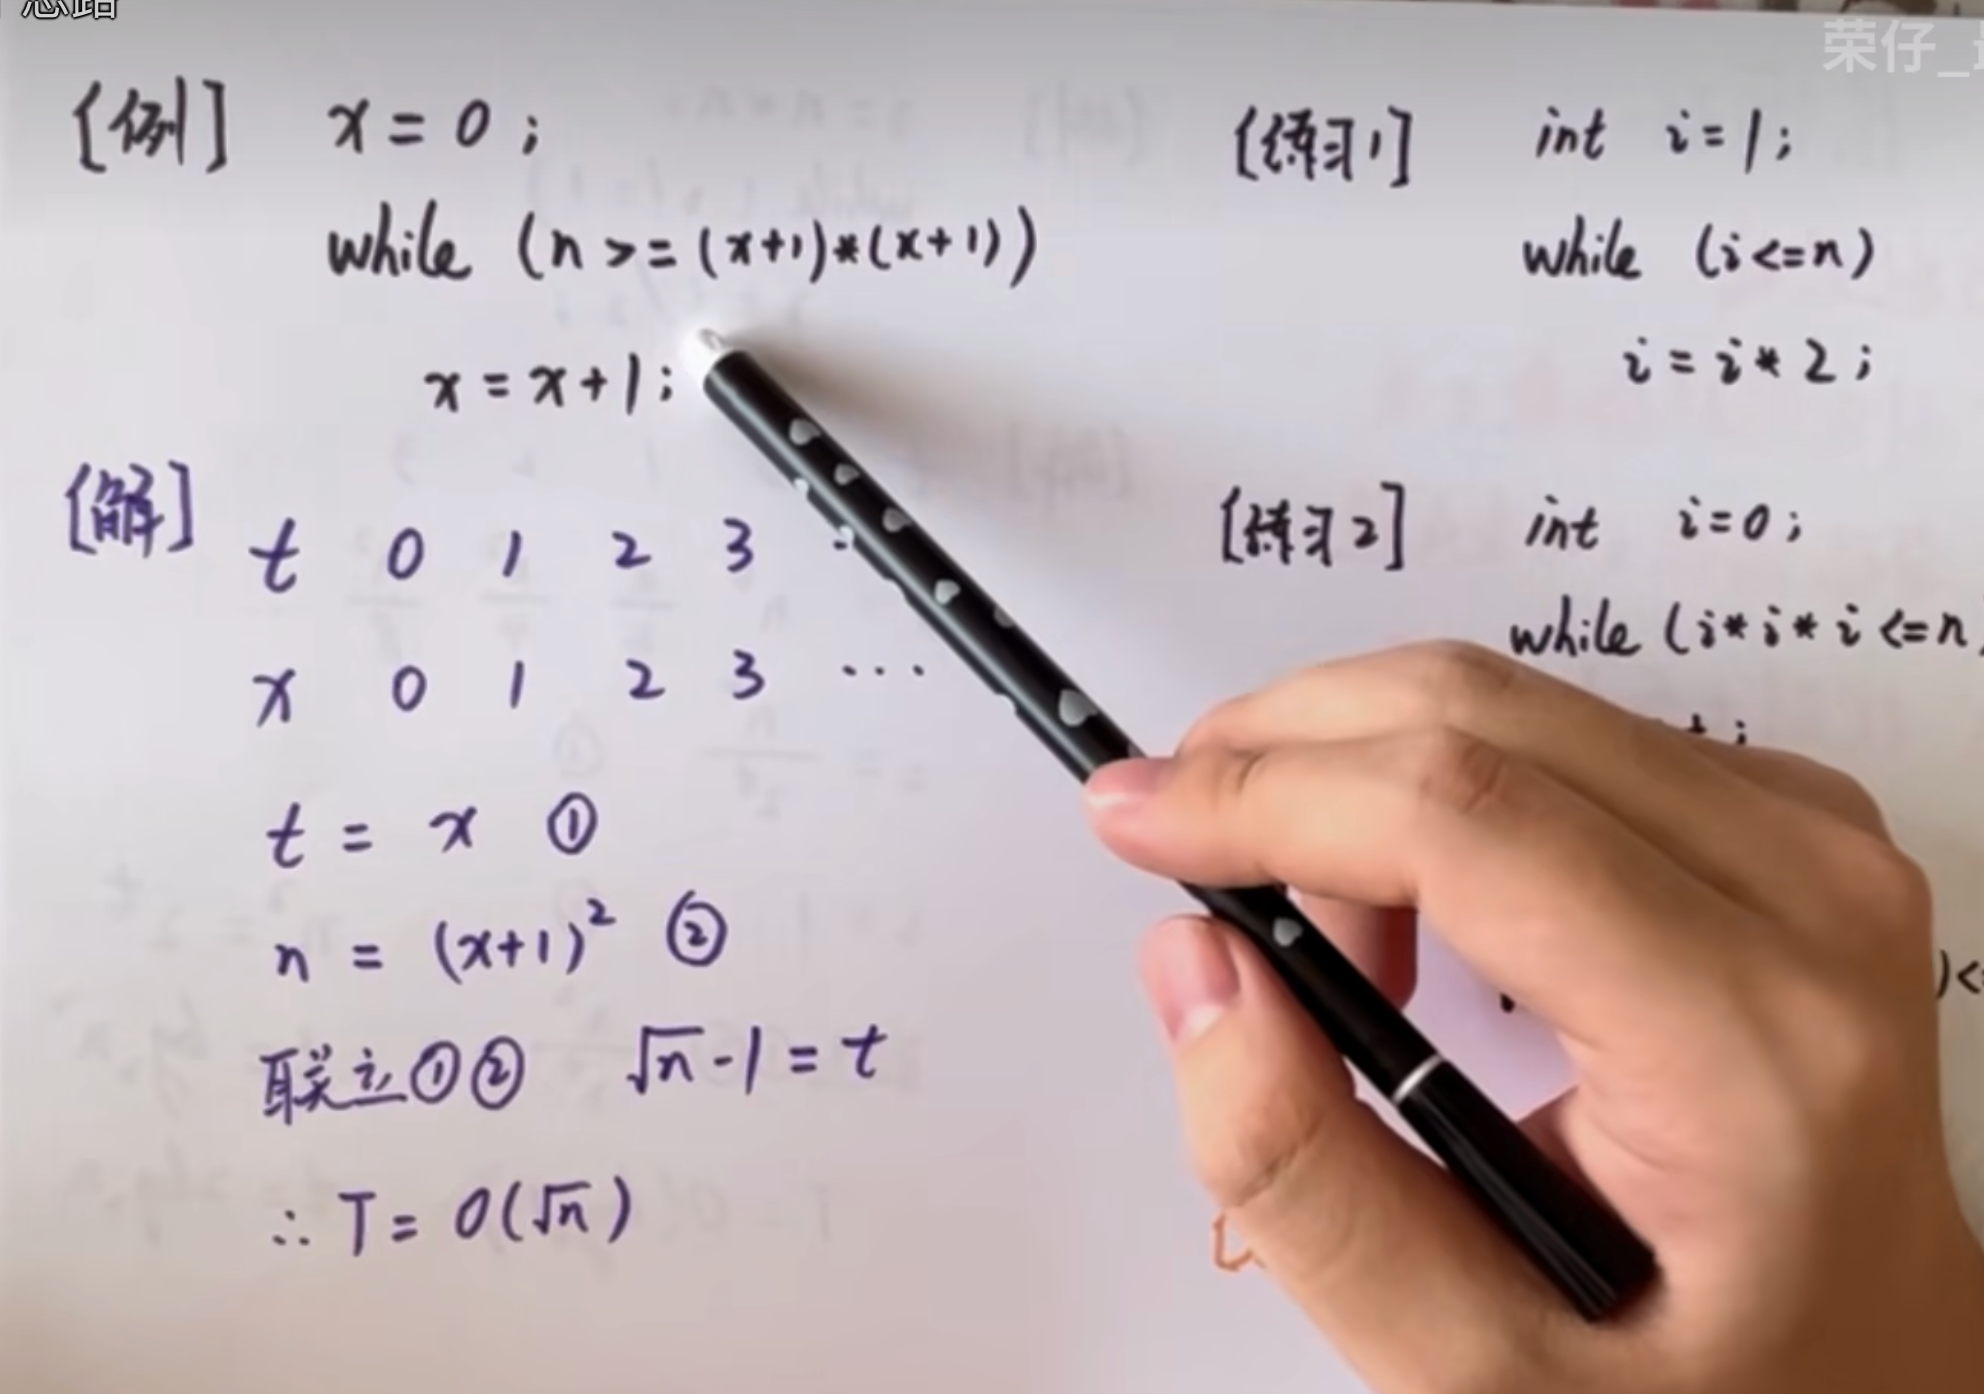 思路
荣仔_
[例] x = 0 ;
while (n >= (x+1)*(x+1))
x = x+1;
[解]
t 0 1 2 3
x 0 1 2 3 ...
t = x ①
n = (x+1)² ②
联立①② √n -1 = t
∴ T = O(√n)
[练习1] int i=1;
while (i<=n)
i = i * 2 ;
[练习2] int i=0;
while (i* i* i <=n)
)<=